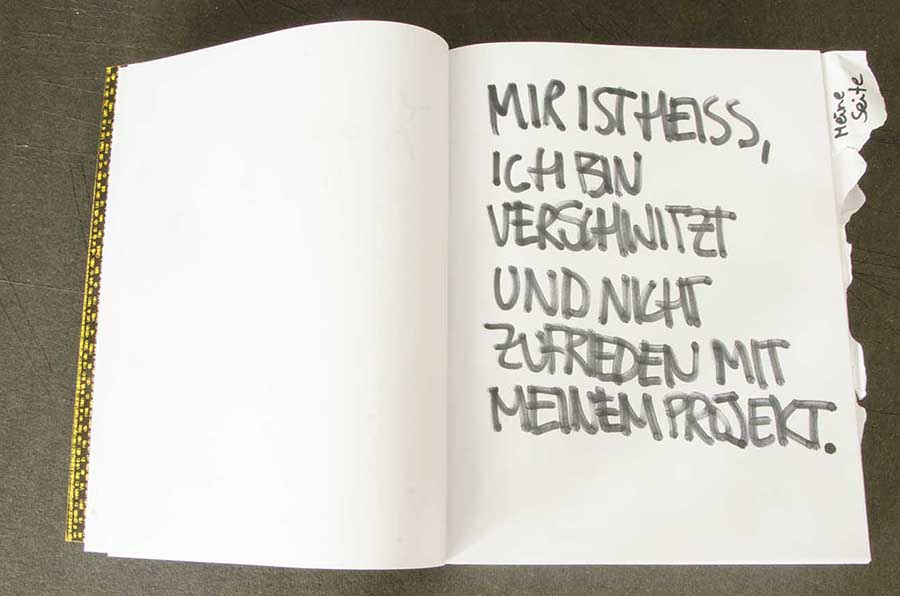 MIR IST HEISS,
ICH BIN
VERSCHWITZT
UND NICHT
ZUFREDEN MIT
MEINEM PROJEKT.
Meine
Seite